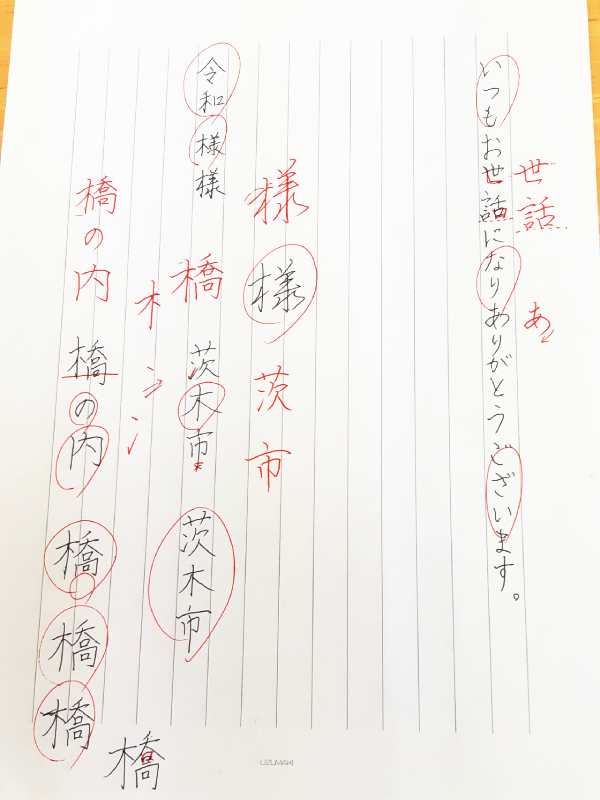 世話
あ
いつもお世話になりありがとうございます。
様
様
茨
市
令和
様様
橋
茨木市
茨木市
木
橋の内
橋の内
橋
橋
橋
橋
UZUMAKI